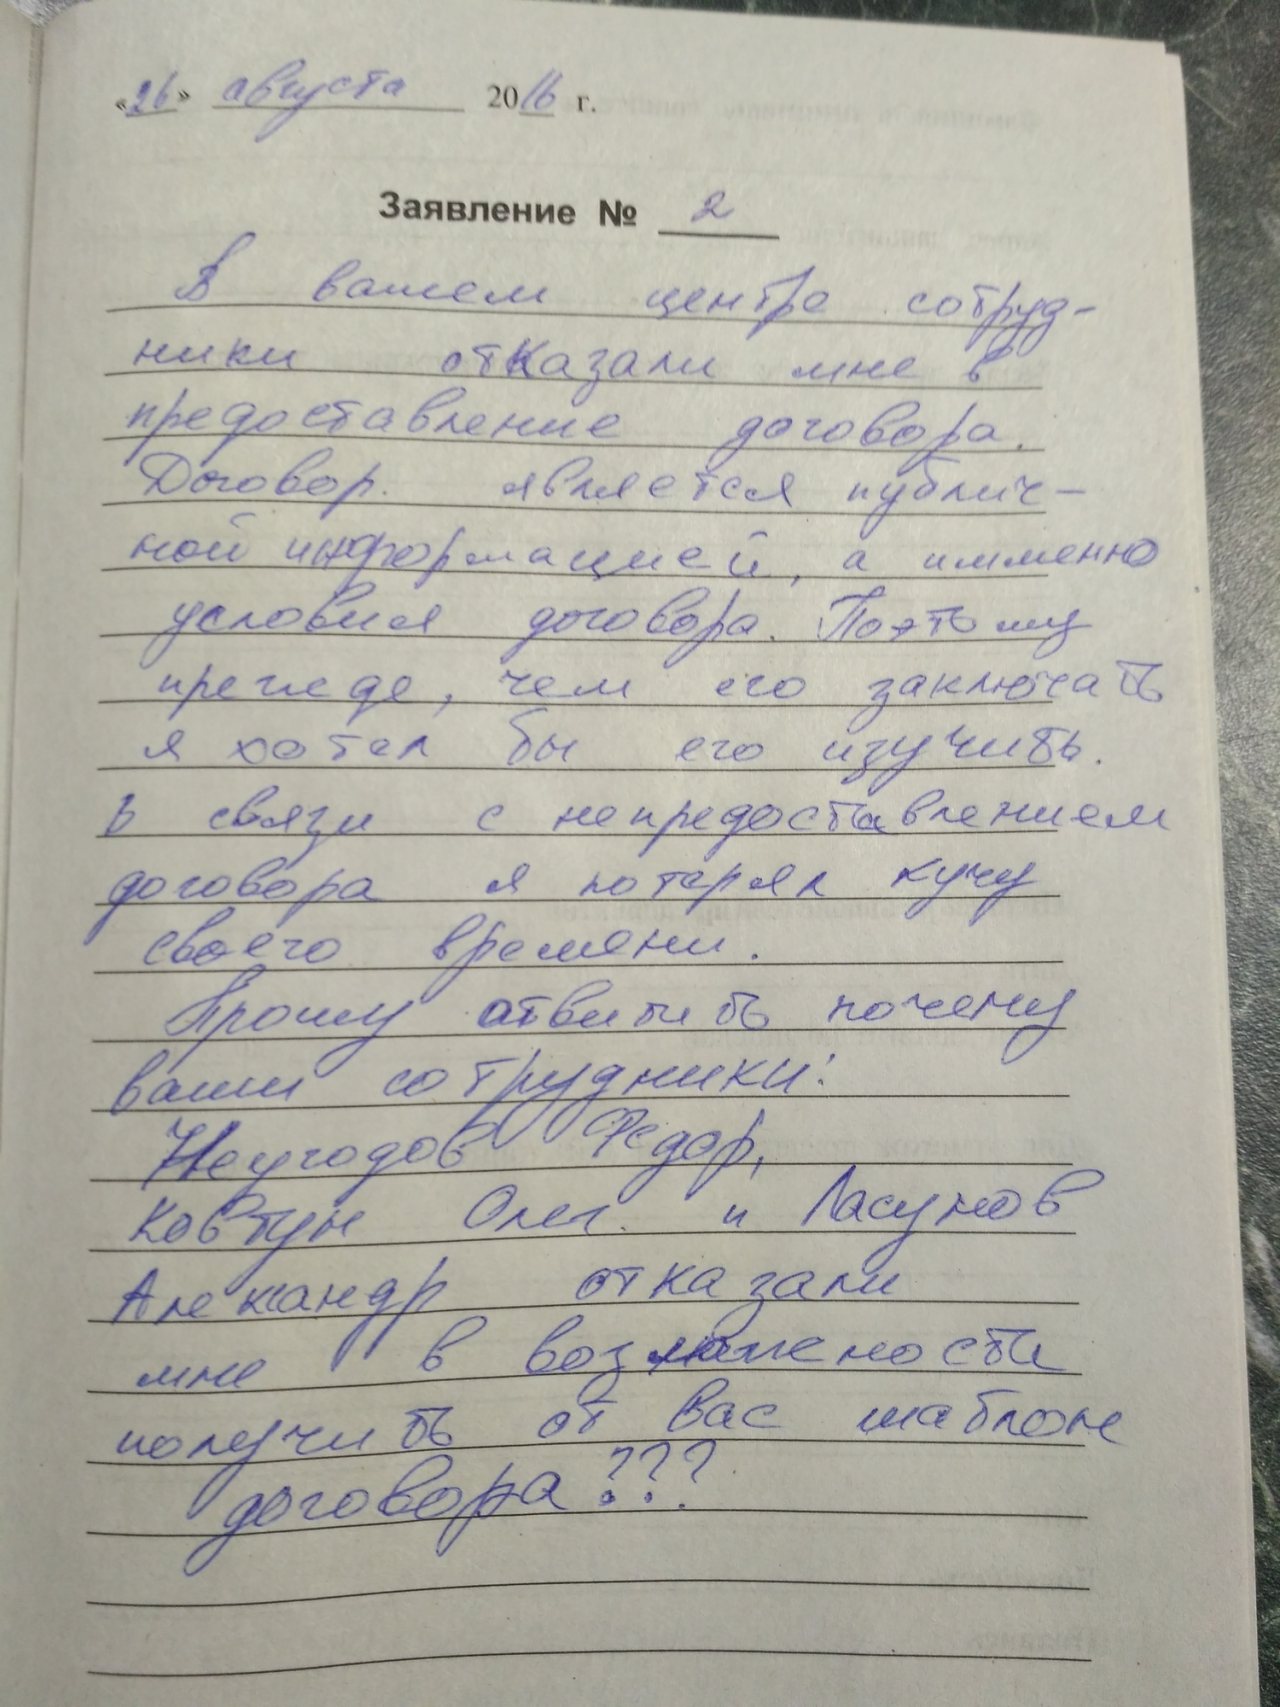 «26» августа 2016 г.
Заявление № 2
В вашем центре сотруд-
ники отказали мне в
предоставление договора.
Договор. является публич-
ной информацией, а имменно
условия договора. Поэтому
прежде, чем его заключать
я хотел бы его изучить.
В связи с непредоставлением
договора я потерял кучу
своего времени.
Прошу отвитить почему
ваши сотрудники:
Неугодов Федор,
Ковтун Олег. и Ласунов
Александр отказали
мне в возможености
получить от Вас шаблон
договора???